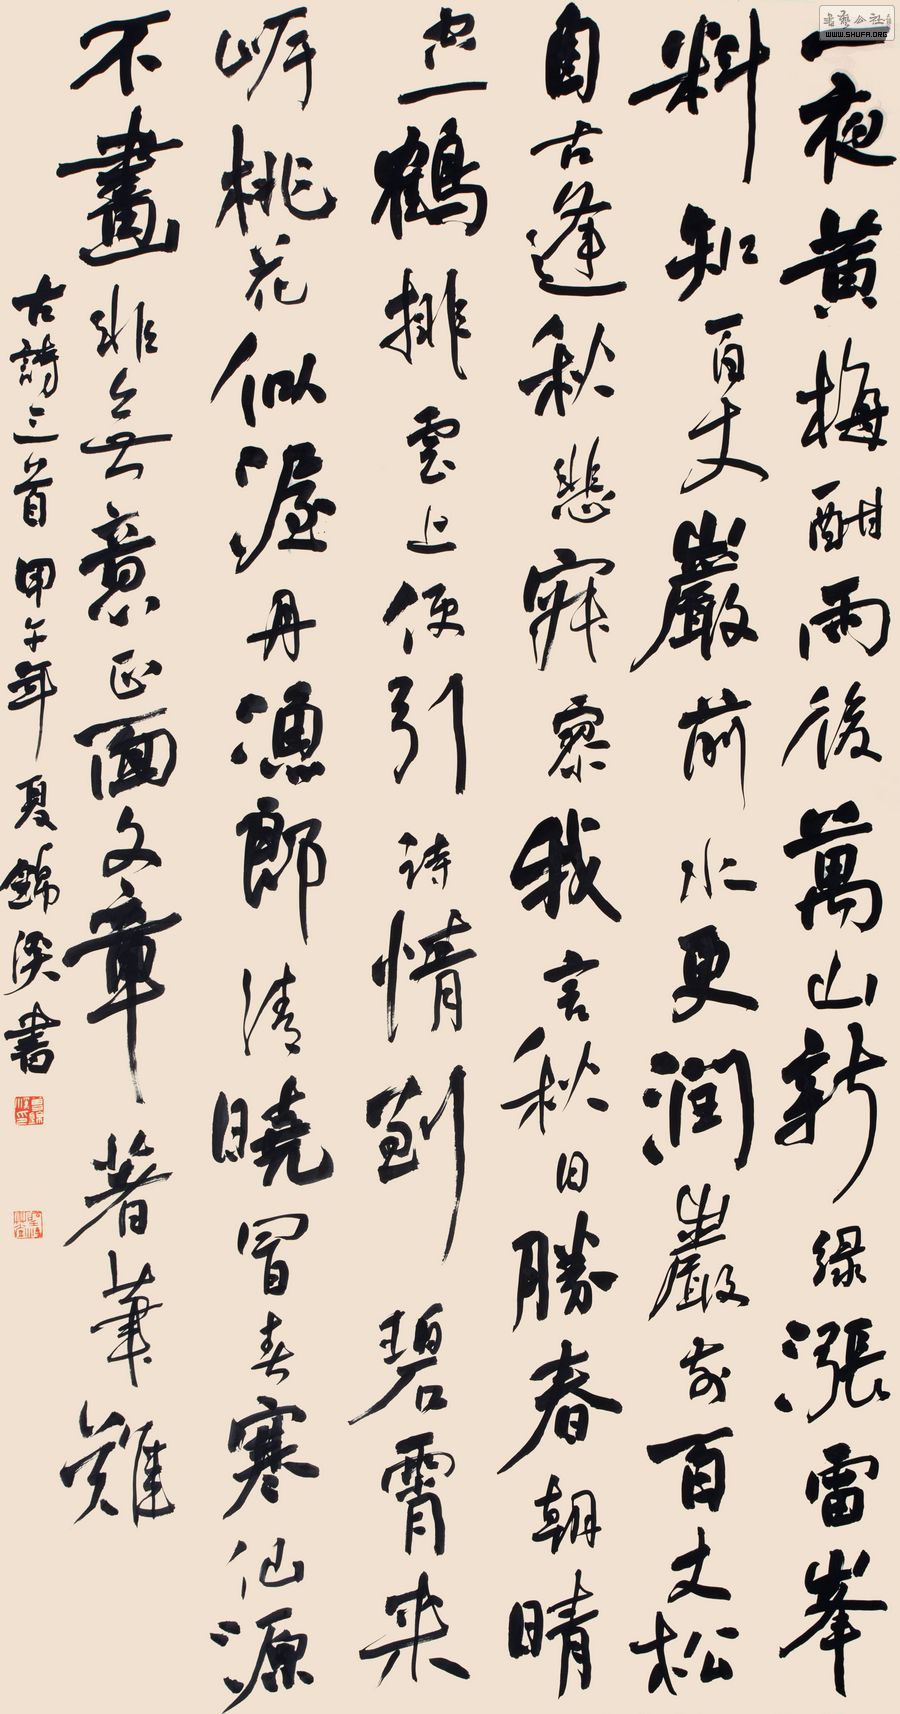 書藝公社
WWW.SHUFA.ORG
一夜黄梅酣雨後萬山新緑漲雷峯
料知百丈巖前水更潤巖前百丈松
自古逢秋悲寂寥我言秋日勝春朝晴
空一鶴排雲上便引詩情到碧霄夾
岍桃花似渥丹漁郎清曉冒春寒仙源
不畫非無意正面文章著筆難
古詩三首甲午年夏錦溪書